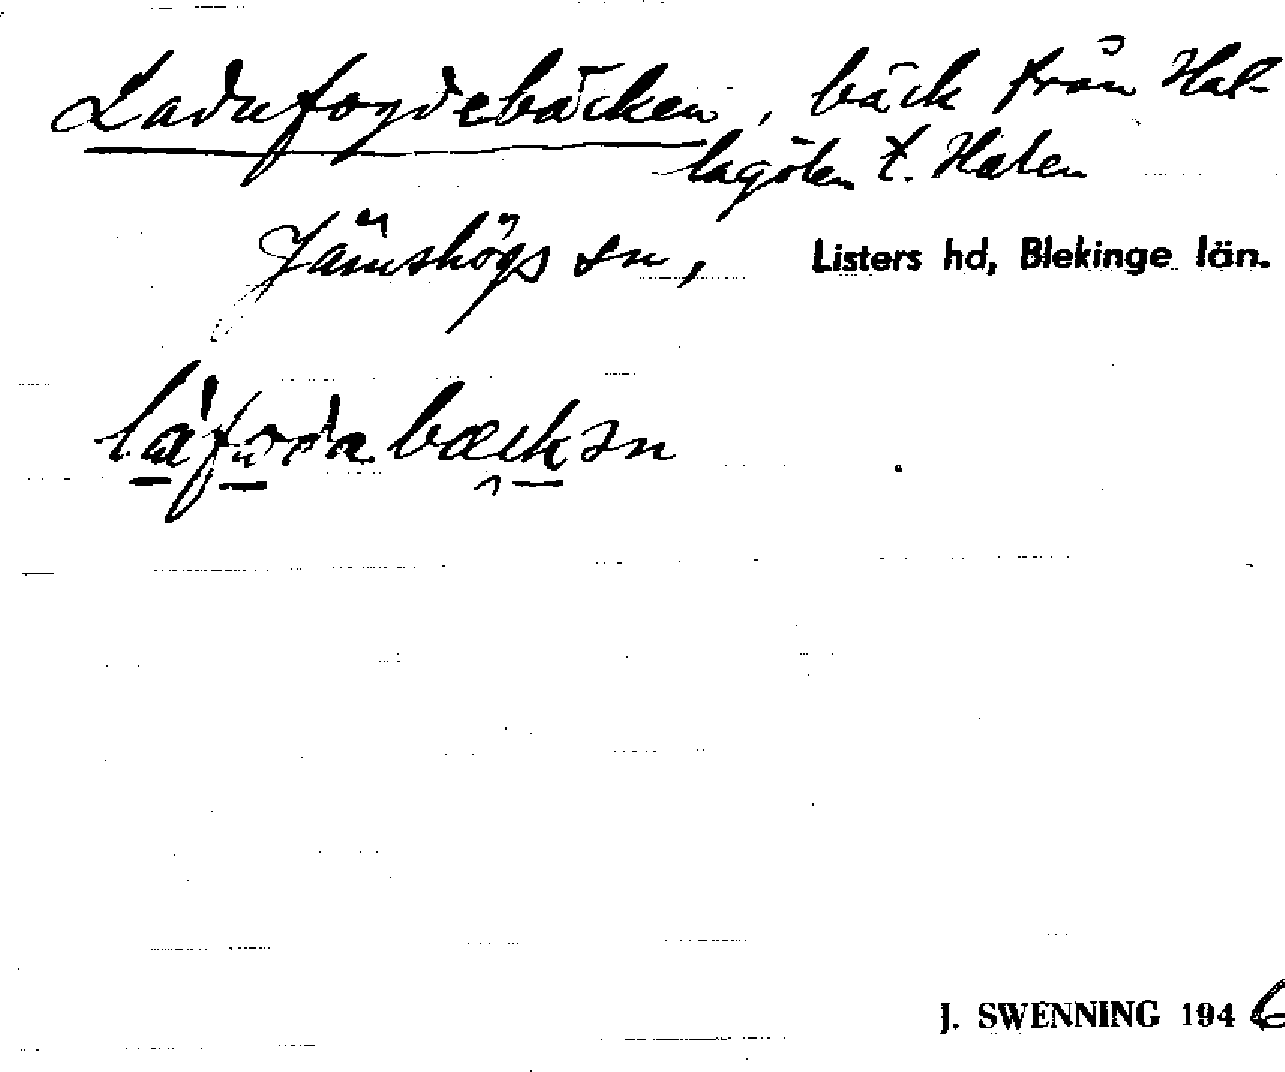 Ladufogdebäcken, bäck från Hal-
lagölen t. Halen
Jämshögs sn, Listers hd, Blekinge län.
J. SWENNING 1946